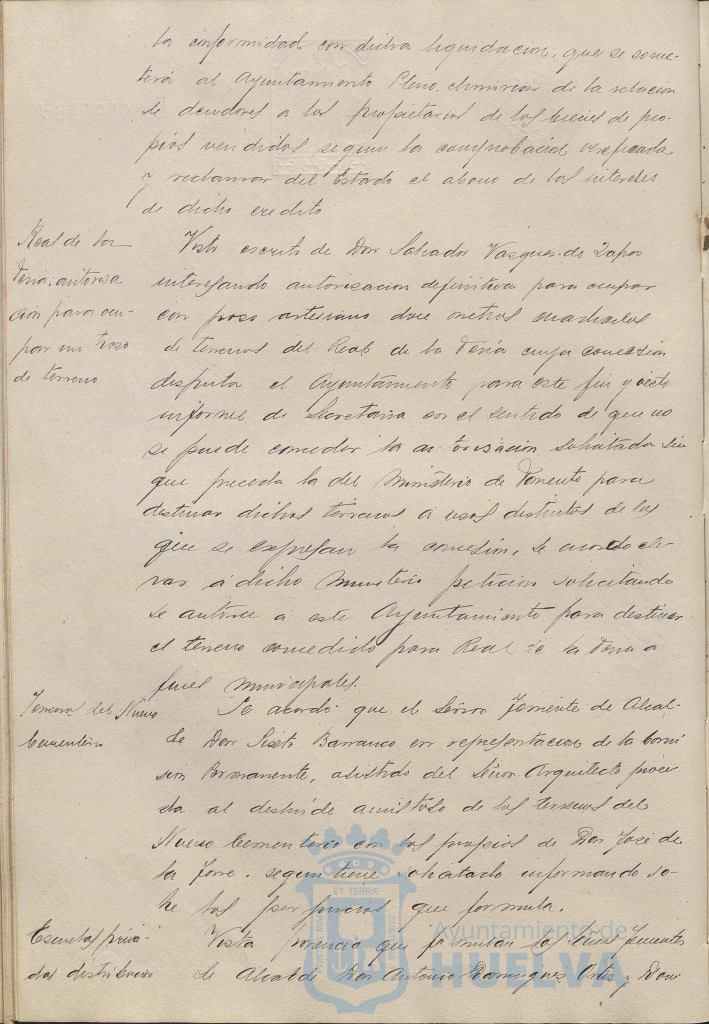 la conformidad con dicha liquidacion, que se some-
terá al Ayuntamiento Pleno, eliminar de la relacion
de deudores a los propietarios de los bienes de pro-
pios vendidos segun la comprobacion verificada
y reclamar del Estado el abono de los intereses
de dicho credito
Real de la
Feria: autoriza
cion para ocu-
par un trozo
de terreno
Visto escrito de Don Salvador Vasquez de Zapas
interesando autorizacion definitiva para ocupar
con poso artesiano doce metros cuadrados
de terrenos del Real de la Feria cuya concesion
disfruta el Ayuntamiento para este fin y visto
informe de Secretaria en el sentido de que no
se puede conceder la autorisacion solicitada sin
que preceda la del Ministerio de Fomento para
destinar dichos terrenos a usos distintos de los
que se expresan la concesion, se acordo ele-
var a dicho Ministerio peticion solicitando
se autorice a este Ayuntamiento para destinar
el terreno concedido para Real de la Feria a
fines municipales.
Terrenos del Nuevo
Cementerio
Se acordó que el Señor Teniente de Alcal-
de Don Sixto Barranco en representacion de la Comi
sion Permanente, asistido del Señor Arquitecto proce
da al deslinde amistoso de los terrenos del
Nuevo Cementerio con los propios de Don José de
la Torre, segun tiene solicitado informando so-
bre los perjuicios que formula.
Escuelas priva-
das distribucion
Vista que formulan los Tenientes
de Alcalde Don Antonio Dominguez Ortiz y Don
ET TERRÆ
Ayuntamiento de
HUELVA